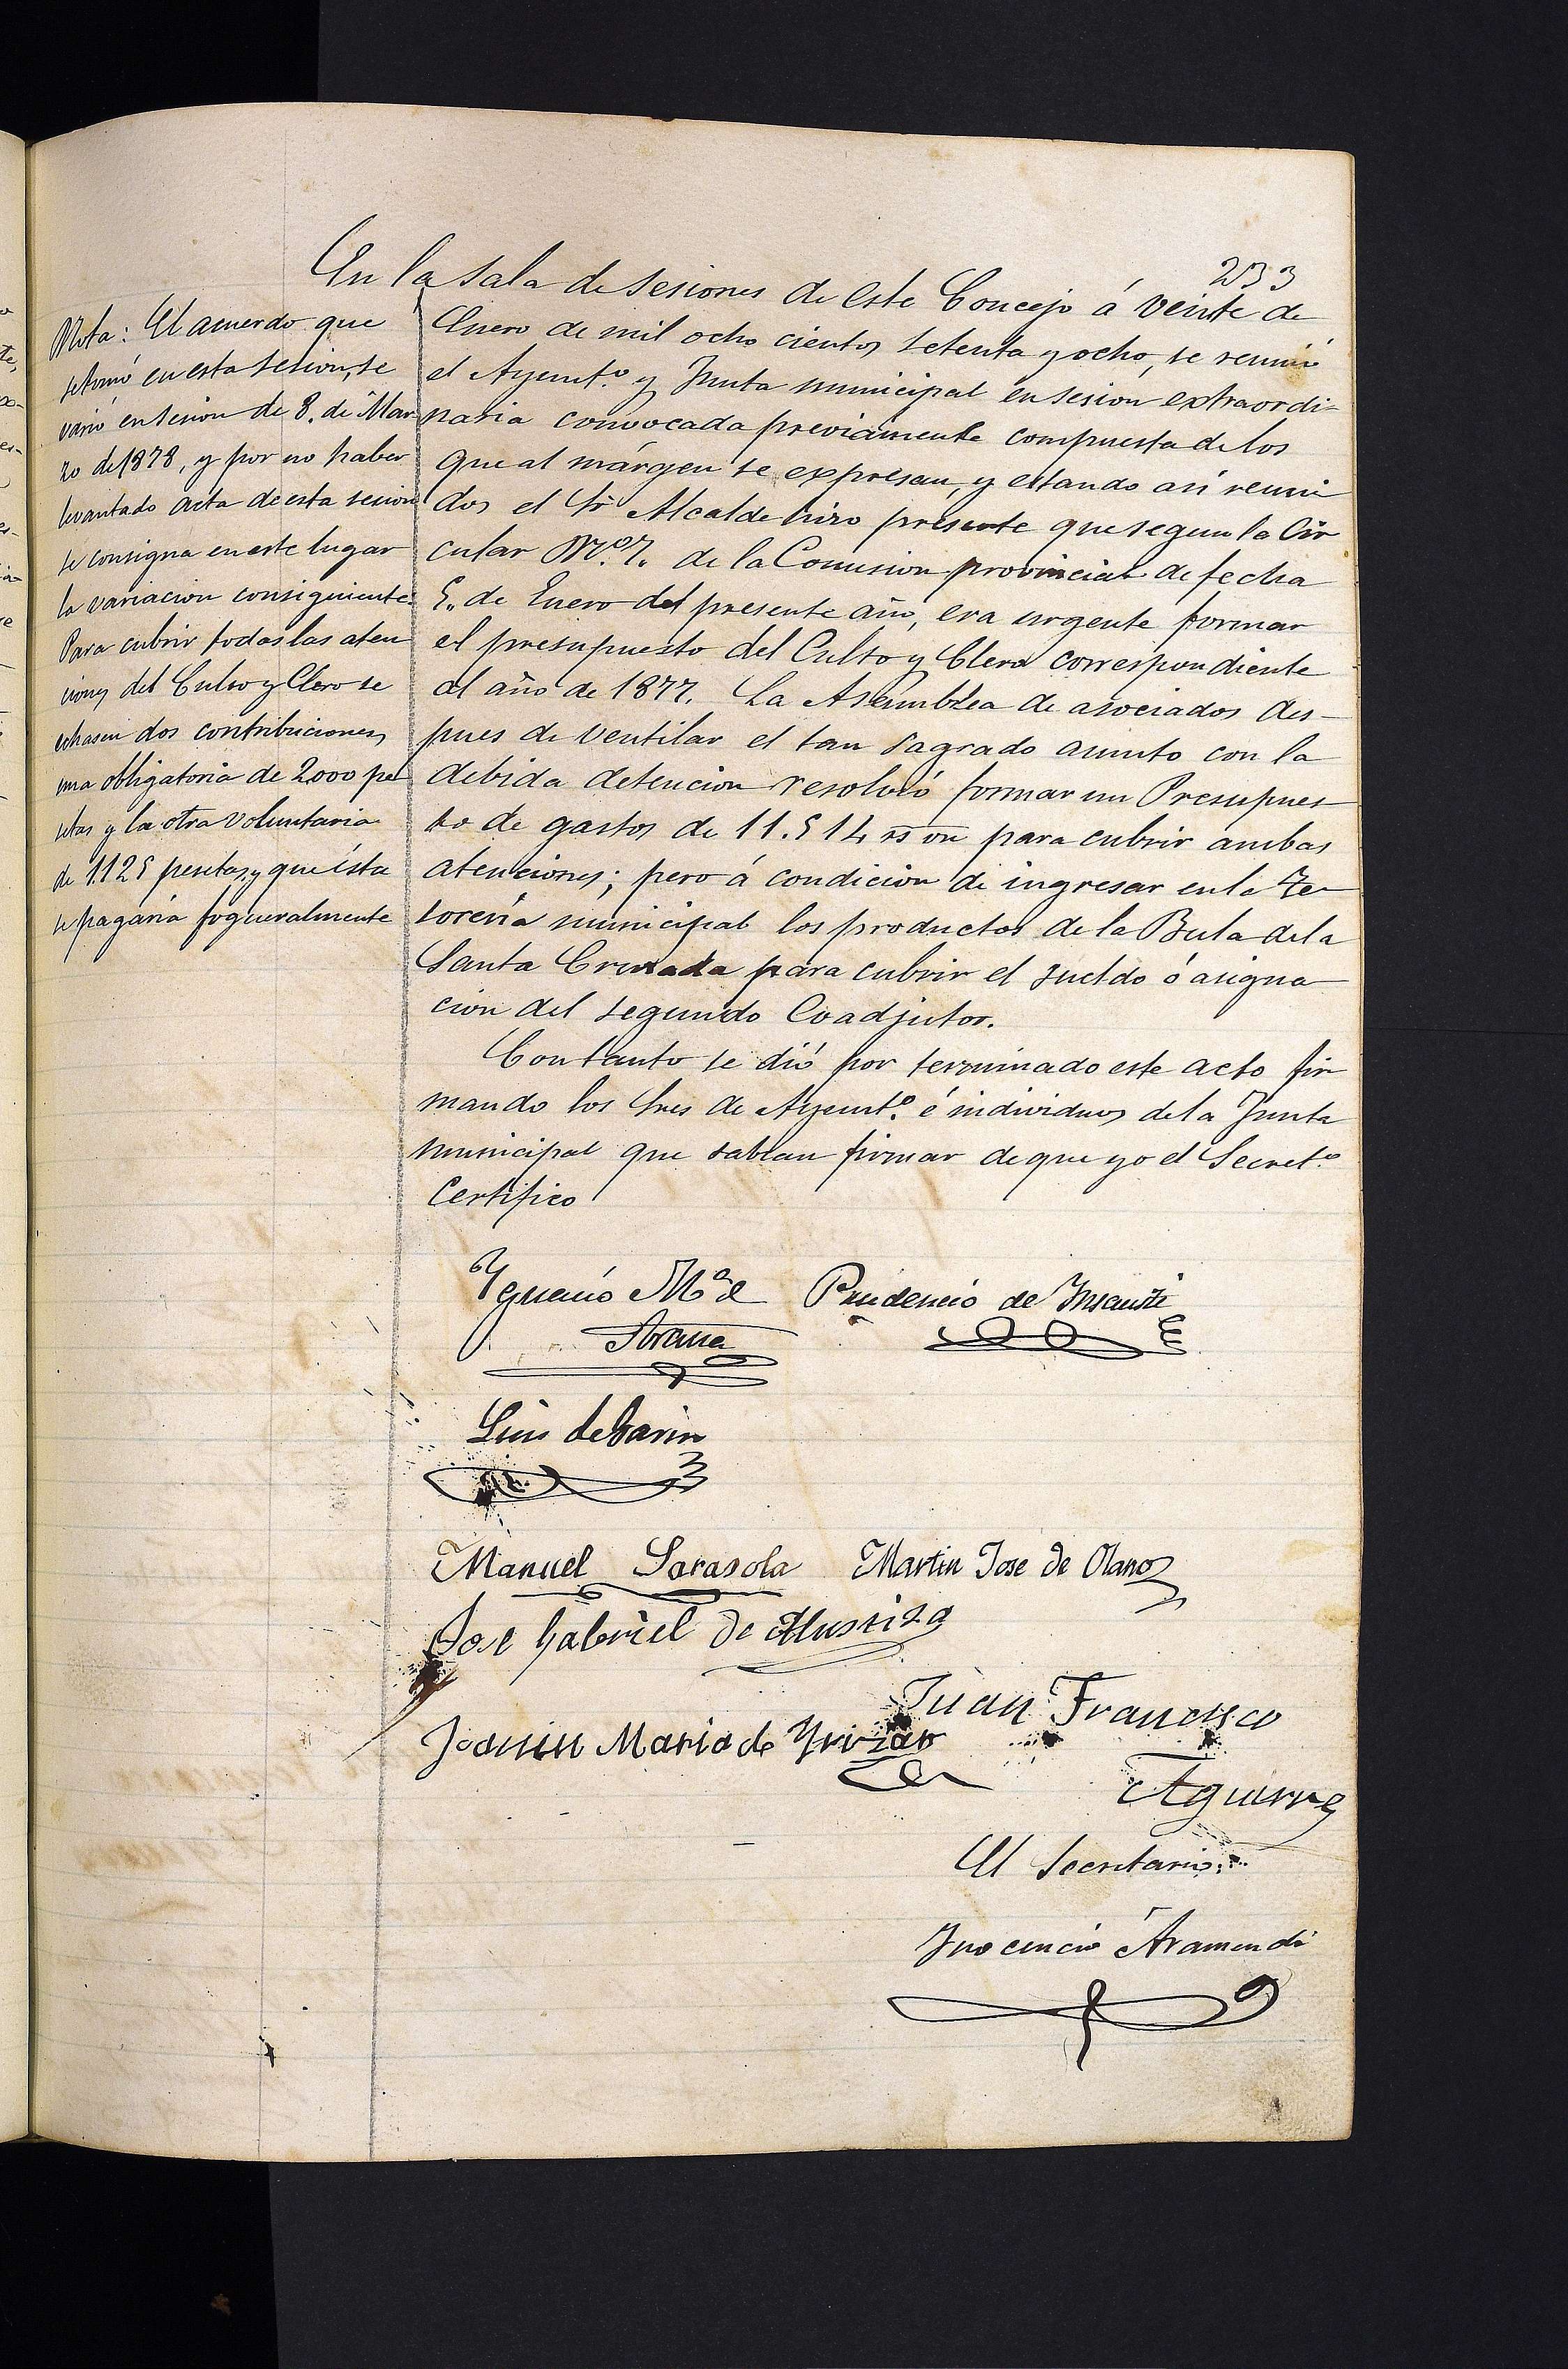 233
En la sala de sesiones de este Concejo á veinte de
Enero de mil ocho cientos setenta y ocho, se reunió
el Ayunt.º y Junta municipal en sesion extraordi-
naria convocada préviamente compuesta de los
que al márgen se expresan, y estando así reuni
dos el Sr Alcalde hizo presente que segun la Cir
cular N.º 7. de la Comision provincial de fecha
5. de Enero del presente año, era urgente formar
el presupuesto del Culto y Clero correspondiente
al año de 1877. La Asamblea de asociados des-
pues de ventilar el tan sagrado asunto con la
debida detencion resolvió formar un Presupues
to de gastos de 11.514 rs vn para cubrir ambas
atenciones; pero á condicion de ingresar en la Te
sorería municipal los productos de la Bula de la
Santa Cruzada para cubrir el sueldo ó asigna
cion del segundo Coadjutor.
Con tanto se dió por terminado este acto fir
mando los Sres de Ayunt.º é individuos de la Junta
municipal que sabian firmar de que yo el Secret.º
Certifico
Nota: El acuerdo que
se tomó en esta sesion, se
varió en sesion de 8. de Mar
zo de 1878, y por no haber
levantado acta de esta sesion
se consigna en este lugar
la variacion consiguiente.
Para cubrir todas las aten
ciones del Culto y Clero se
echasen dos contribuciones,
una obligatoria de 2000 pe
setas y la otra voluntaria
de 1125 pesetas, y que ésta
se pagaria fogueralmente
Ygnacio M.ª de Prudencio de
Arana
Luis de
Manuel Sarasola Martin Jose de Olano
Jose Gabriel de
Juan Francisco
Joaquin Maria de Yrizar
Aguirre
El Secretario:
Ynocencio Aramendi